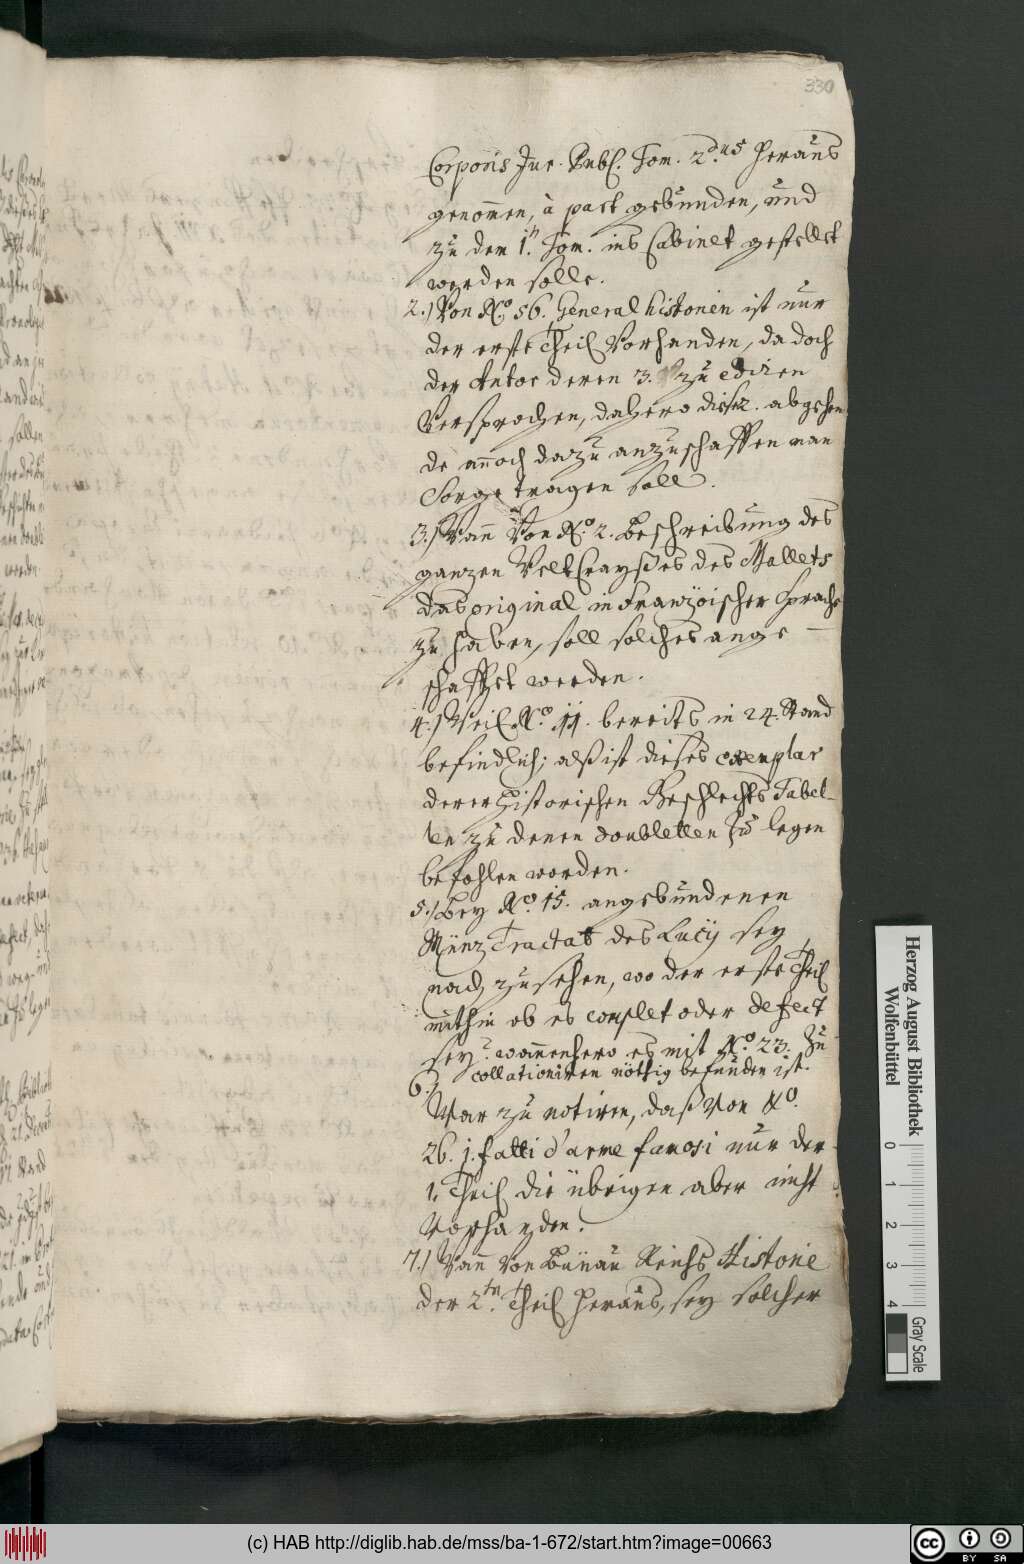 330
Corporis Jur. Publ. Tom. 2dus herauß
genom̄en, à part gebunden, und
zu dem 1n. Tom. ins Cabinet gestellet
werden solle.
2.) Von No. 56. General historien ist nur
der erste Theil vorhanden, da doch
der Autor deren 3. zu ediren
versprochen, dahero diese 2. abgehen
de an̄och dazu anzuschaffen man
Sorge tragen soll.
3.) Wan̄ von No. 2. Beschreibung des
ganzen Welt Crayßes des Mallets
das original in Französischer Sprache
zu haben, soll solches ange
schaffet werden.
4.) Weil No. 11. bereits in 24. Stand
befindlich; alß ist dieses exemplar
derer Historischen Geschlechts Tabel-
len zu denen doubletten zu legen
befohlen worden.
5.) Bey No. 15. angebundenen
Münz Tractat des Lucij sey
nach zusehen, wo der erste Theil
mithin ob es complet oder defect
sey? wan̄enhero es mit No. 23. zu
collationiren nöthig befunden ist.
6.)
War zu notiren, daß von No.
26. j. fatti d'arme famosi nur der
1. Theil die übrigen aber nicht
vorhanden.
7.) Wan̄ von Bünau Reichs Historie
der 2tn. Theil herauß, sey solcher
Herzog August Bibliothek
Wolfenbüttel
0 1 2 3 4
Gray Scale
(c) HAB http://diglib.hab.de/mss/ba-1-672/start.htm?image=00663
cc BY SA